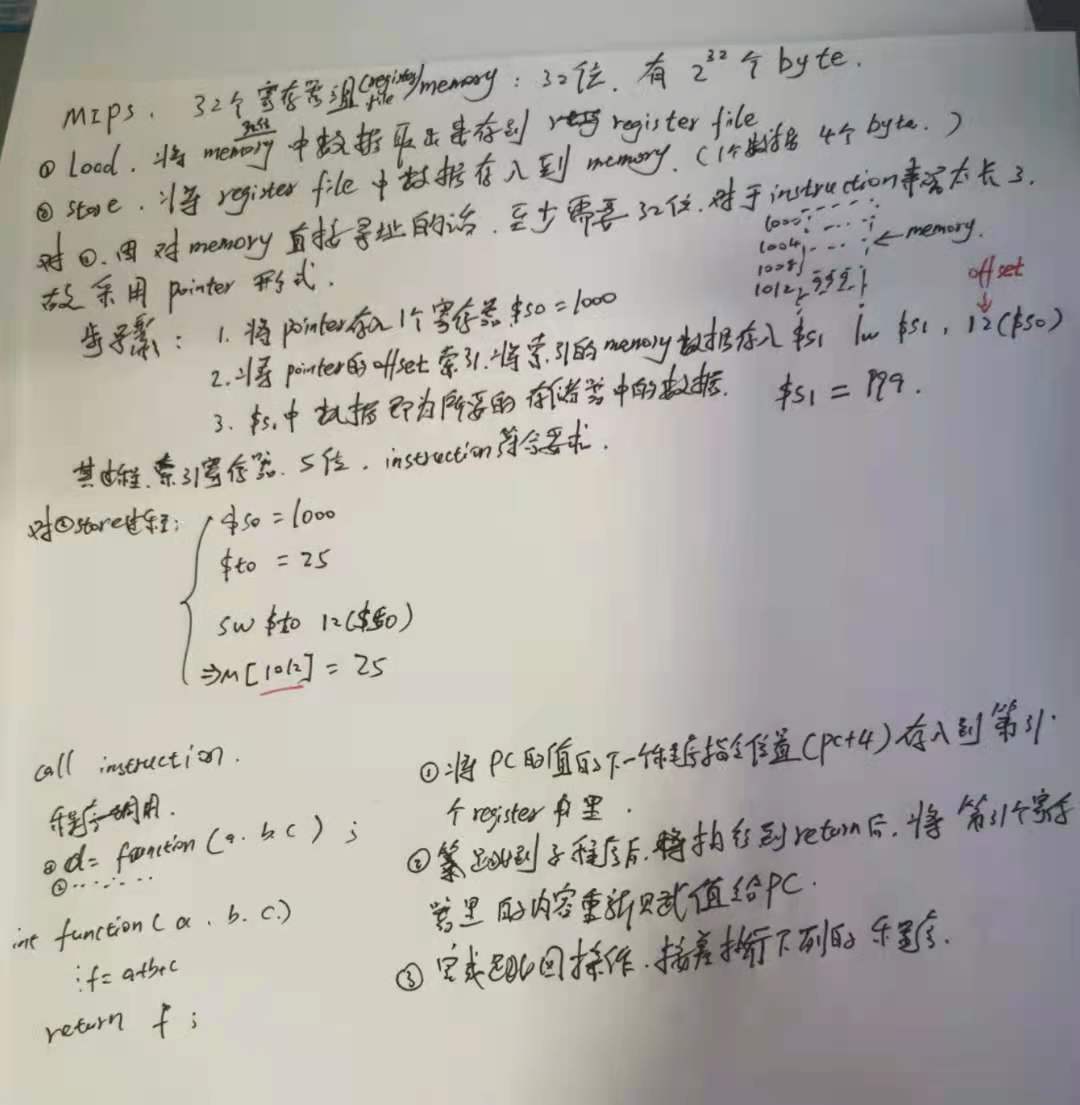 MIPS. 32个寄存器组(register file) memory: 32位. 有 2^32 个 byte.
① load. 将 memory 中数据取出来存到 register file
② store. 将 register file 中数据存入到 memory. (1个数据 4个 byte.)
对①. 因对 memory 直接寻址的话. 至少需要 32位. 对于 instruction 来说太长了.
故采用 pointer 形式.
1000
1004
1008
1012
← memory.
offset
步骤: 1. 将 pointer 存入1个寄存器 $s0 = 1000
2. 将 pointer 的 offset 索引. 将索引的 memory 数据存入 $s1 lw $s1, 12($s0)
3. $s1 中数据即为所要的存储器中的数据. $s1 = 999.
其过程. 索引寄存器. 5位. instruction 符合要求.
对②store过程: $s0 = 1000
$t0 = 25
sw $t0 12($s0)
⇒ M[1012] = 25
call instruction.
程序调用.
① d = function (a. b. c) ;
② ......
int function (a. b. c.)
: f = a+b+c
return f ;
① 将 PC 的值的下一个程序指令位置 (PC+4) 存入到第31.
个 register 里.
② 跳到子程序后. 执行到 return 后. 将第31个寄存
器里的内容重新赋值给 PC.
③ 完成跳回操作. 接着执行下列的程序.